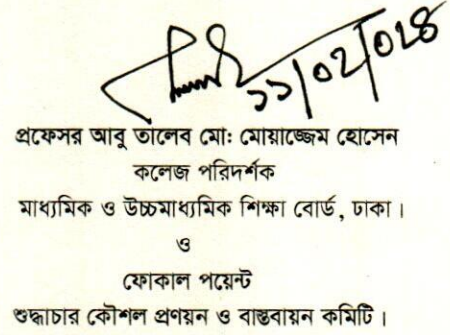 ১১/০২/০২৪
প্রফেসর আবু তালেব মো: মোয়াজ্জেম হোসেন
কলেজ পরিদর্শক
মাধ্যমিক ও উচ্চমাধ্যমিক শিক্ষা বোর্ড, ঢাকা।
ও
ফোকাল পয়েন্ট
শুদ্ধাচার কৌশল প্রণয়ন ও বাস্তবায়ন কমিটি।